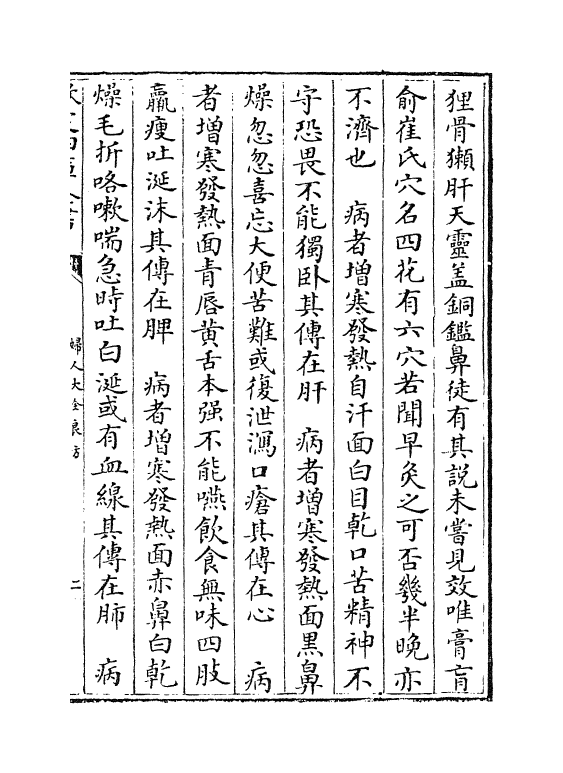 狸骨獺肝天靈葢銅鑑鼻徒有其説未嘗見效唯膏肓
俞崔氏穴名四花有六穴若聞早灸之可否幾半晚亦
不濟也　病者增寒發熱自汗面白目乾口苦精神不
守恐畏不能獨卧其傳在肝　病者增寒發熱面黑鼻
燥忽忽喜忘大便苦難或復泄瀉口瘡其傳在心　病
者增寒發熱面青唇黄舌本强不能嚥飲食無味四肢
羸瘦吐涎沫其傳在脾　病者增寒發熱面赤鼻白乾
燥毛折咯嗽喘急時吐白涎或有血線其傳在肺　病
婦人大全良方
二